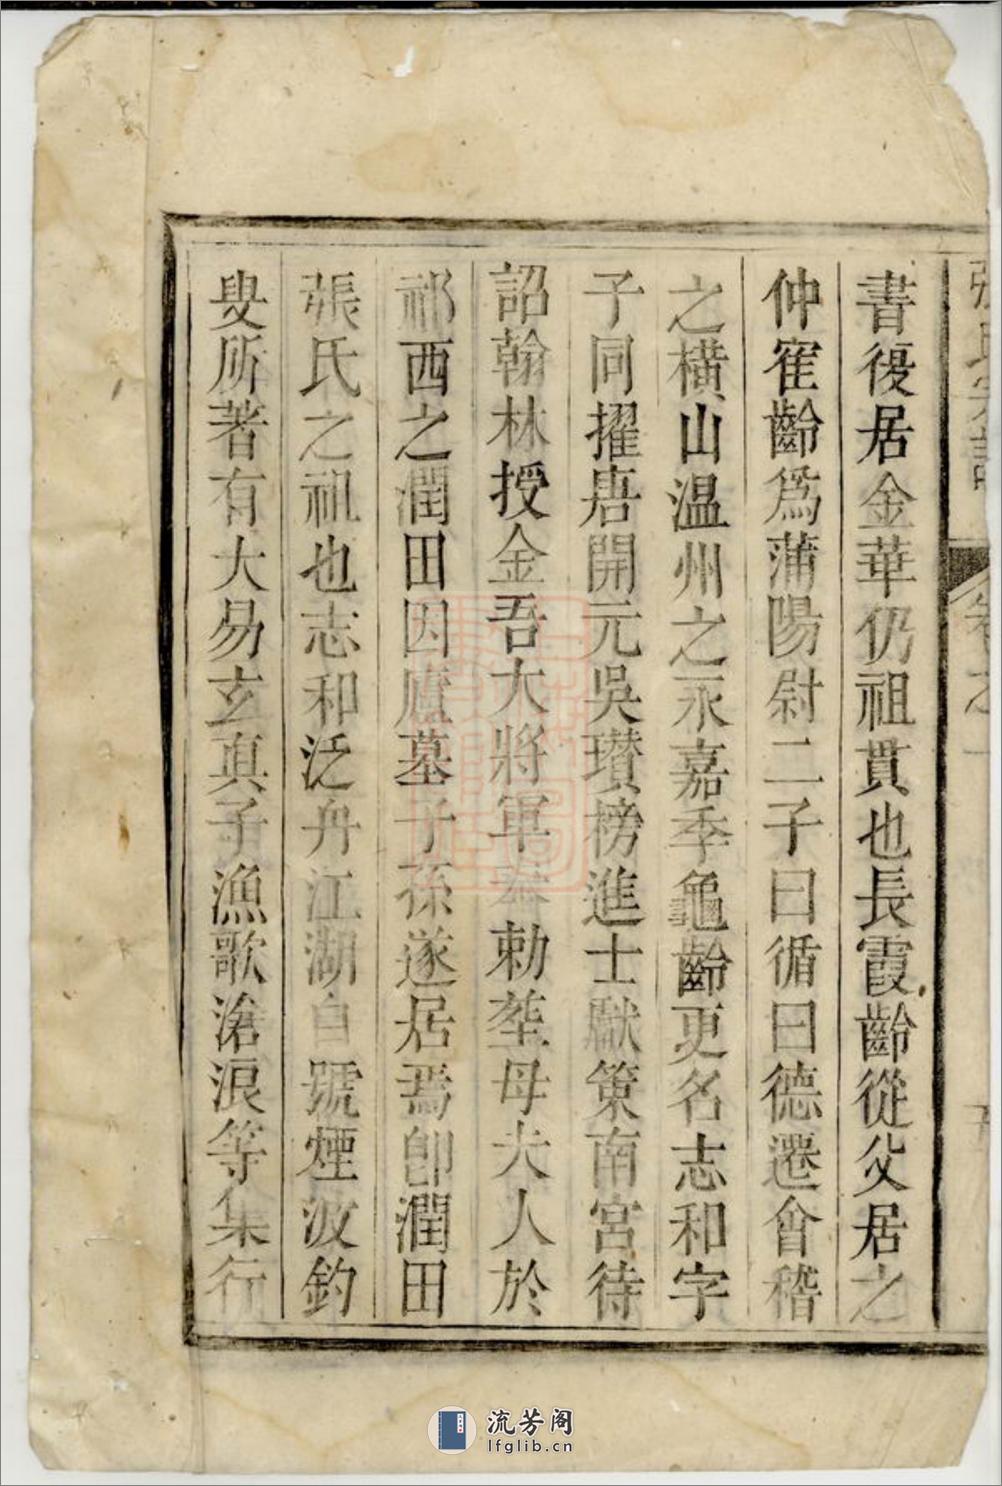 張氏宗譜 卷之一
書復居金華仍祖貫也長霞齡從父居之
仲寉齡爲蒲陽尉二子曰循曰德遷會稽
之横山温州之永嘉季龜齡更名志和字
子同擢唐開元吳瓚榜進士獻策南宮待
詔翰林授金吾大將軍奉勅塟母夫人於
祁西之潤田因廬墓子孫遂居焉卽潤田
張氏之祖也志和泛舟江湖自號煙波釣
叟所著有大易玄真子漁歌滄浪等集行
流芳阁
lfglib.cn